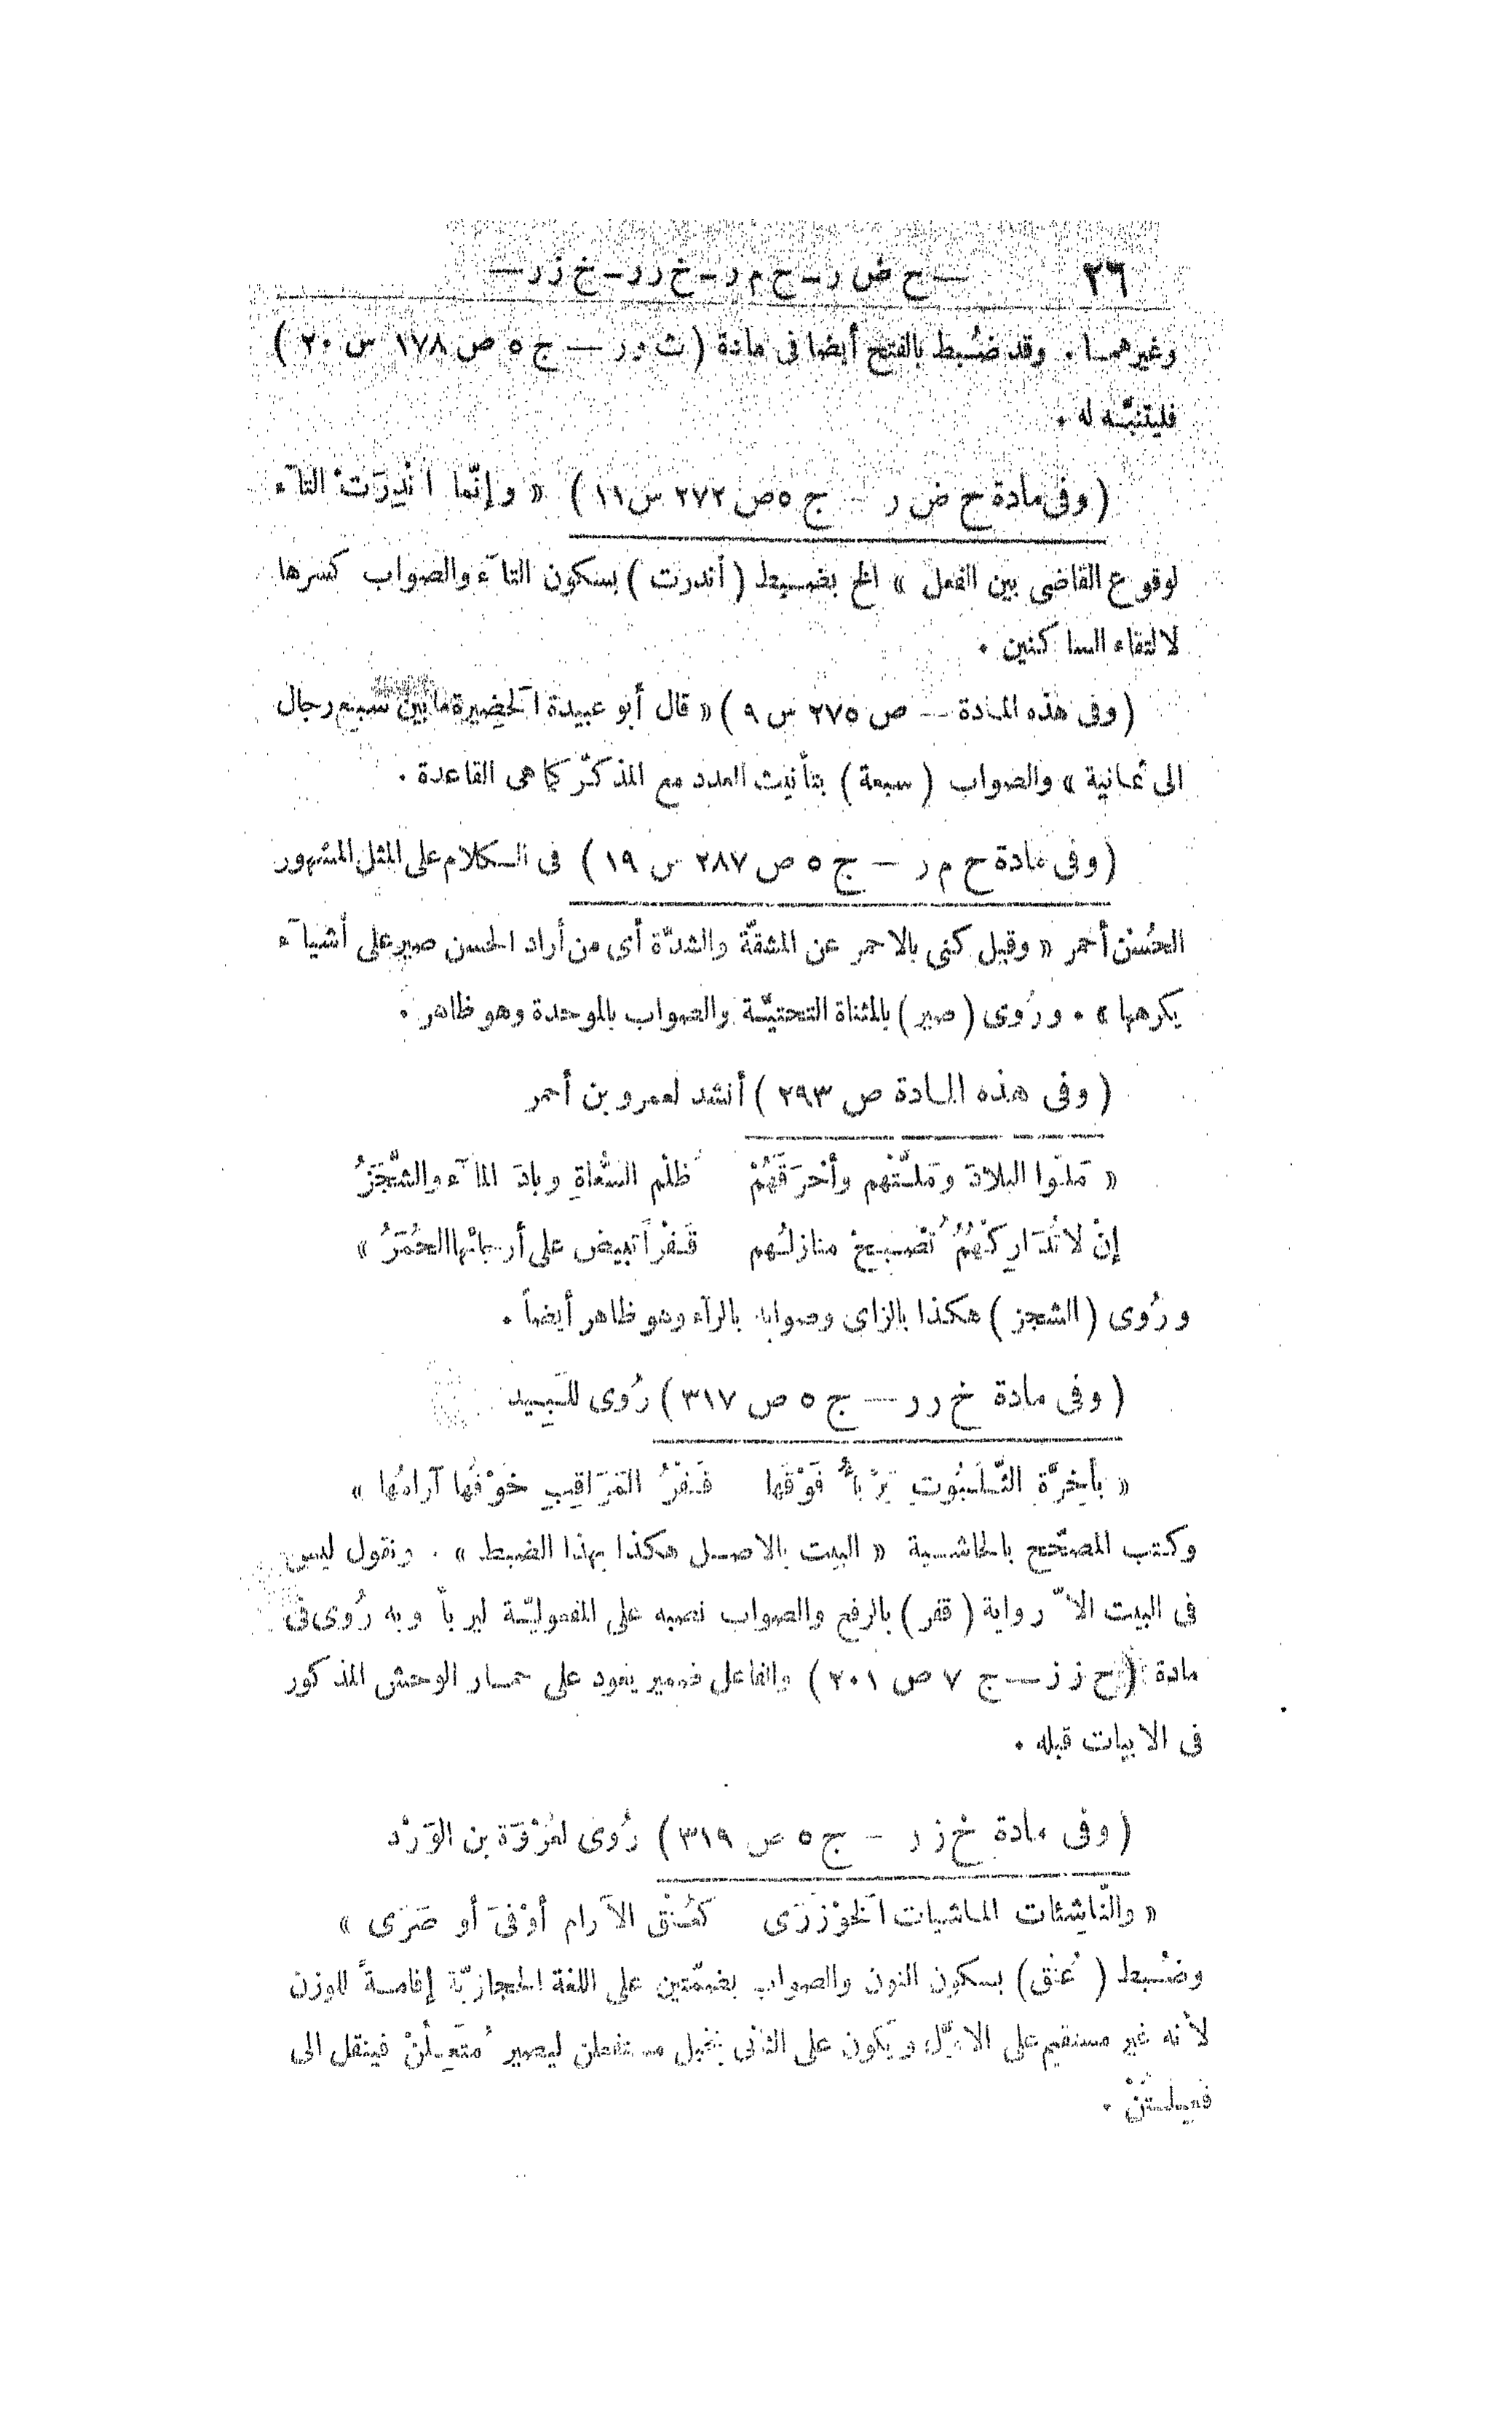 ٢٦ — ح ض ر – ح م ر – خ ر ر – خ ز ر —
وغيرهما . وقد ضُبط بالفتح أيضا فى مادة ( ث ور — ج ٥ ص ١٧٨ س ٢٠ )
فليتنبّه له .
( وفى مادة ح ض ر — ج ٥ص ٢٧٢ س ١١ ) « وإنّما انْدِرَتْ التآء
لوقوع القاضى بين الفعل » الخ بضبط ( أندرت ) بسكون التآء والصواب كسرها
لالتقاء الساكنين .
( وفى هذه المادة — ص ٢٧٥ س ٩ ) « قال أبو عبيدة الحَضِيرة مابين سبع رجال
الى ثمانية » والصواب ( سبعة ) بتأنيث العدد مع المذكّر كما هى القاعدة .
( وفى مادة ح م ر — ج ٥ ص ٢٨٧ س ١٩ ) فى الكلام على المثل المشهور
الحُسْن أحمر « وقيل كنى بالاحمر عن المشقّة والشدّة أى من أراد الحسن صير على أشيآء
يكرهها » . ورُوى ( صير ) بالمثناة التحتيّة والصواب بالموحدة وهو ظاهر .
( وفى هذه المادة ص ٢٩٣ ) أنشد لعمرو بن أحمر
« مَلّوا البلادَ ومَلّتْهم وأحْرَقَهُمْ ظلْم السُّعاةِ وبادَ المآء والشَّجَزُ
إنْ لا تُدَارِكْهُمُ تُصْبِحْ منازلُهم قَفْراً تبيض على أرجائها الحُمَرُ »
ورُوى ( الشجز ) هكذا بالزاى وصوابه بالرآء وهو ظاهر أيضاً .
( وفى مادة خ ر ر — ج ٥ ص ٣١٧ ) رُوى للَبِيد
« بأخِرَّة الثَّلَبُوتِ يَرْبَأُ فَوْقَها قَفْرُ المَرَاقِبِ خَوْفُها آرامُها »
وكتب المصحّح بالحاشية « البيت بالاصل هكذا بهذا الضبط » . ونقول ليس
فى البيت الاّ رواية ( قفر ) بالرفع والصواب نصبه على المفعوليّة ليربأ وبه رُوى فى
مادة ( ح ز ز — ج ٧ ص ٢٠١ ) والفاعل ضمير يعود على حمار الوحش المذكور
فى الابيات قبله .
( وفى مادة خ ز ر — ج ٥ ص ٣١٩ ) رُوى لعُرْوَة بن الوَرْد
« والنّاشِئات الماشيات الخَوْزَرَى كعُنْق الآرام أوْفىَ أو صَرَى »
وضُبط ( عُنْق ) بسكون النون والصواب بضمّتين على اللغة الحجازيّة إقامةً للوزن
لأنه غير مستقيم على الاوّل ويكون على الثانى بخبل مستفعلن ليصير مُتَعِلُنْ فينقل الى
فَعِلَتُنْ .